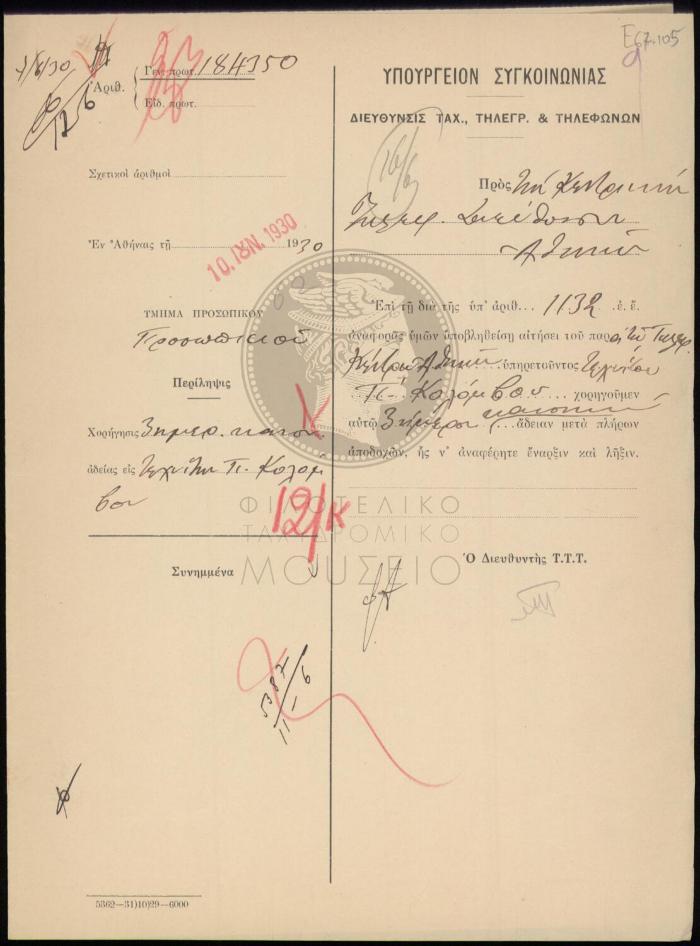 7/6/30
Ἀριθ.
Γεν. πρωτ. 184350
Εἰδ. πρωτ.
12/6
Σχετικοὶ ἀριθμοὶ
Ἐν Ἀθήναις τῇ 1930
10. ΙΟΥΝ. 1930
ΤΜΗΜΑ ΠΡΟΣΩΠΙΚΟΥ
Προσωπικοῦ
Περίληψις
Χορήγησις 3ημερ. κανον
ἀδείας εἰς τεχνίτην Π. Κολόμ
βου
12/Κ
Συνημμένα
5387
11-6
5362—31)10)29—6000
Ε67.105
ΥΠΟΥΡΓΕΙΟΝ ΣΥΓΚΟΙΝΩΝΙΑΣ
ΔΙΕΥΘΥΝΣΙΣ ΤΑΧ., ΤΗΛΕΓΡ. & ΤΗΛΕΦΩΝΩΝ
Πρὸς τὴν Κεντρικὴν
Τηλεγρ. Διεύθυνσιν
Ἀθηνῶν
Ἐπὶ τῇ διὰ τῆς ὑπ' ἀριθ. 1132 ἐ. ἔ.
ἀναφορᾶς ὑμῶν ὑποβληθείσῃ αἰτήσει τοῦ παρὰ τῷ Τηλεγρ.
Κέντρῳ Ἀθηνῶν ὑπηρετοῦντος τεχνίτου
Π. Κολόμβου χορηγοῦμεν
αὐτῷ 3ήμερον κανονικὴν ἄδειαν μετὰ πλήρων
ἀποδοχῶν, ἧς ν' ἀναφέρητε ἔναρξιν καὶ λῆξιν.
Ὁ Διευθυντὴς Τ.Τ.Τ.
ΦΙΛΟΤΕΛΙΚΟ
ΤΑΧΥΔΡΟΜΙΚΟ
ΜΟΥΣΕΙΟ